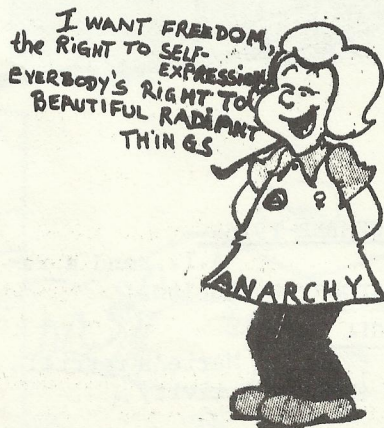 I WANT FREEDOM,
the RiGHT TO SELF-
EXPRESSION,
EVERBODY'S RiGHT TO
BEAUTIFUL RADiANT
THINGS
ANARCHY